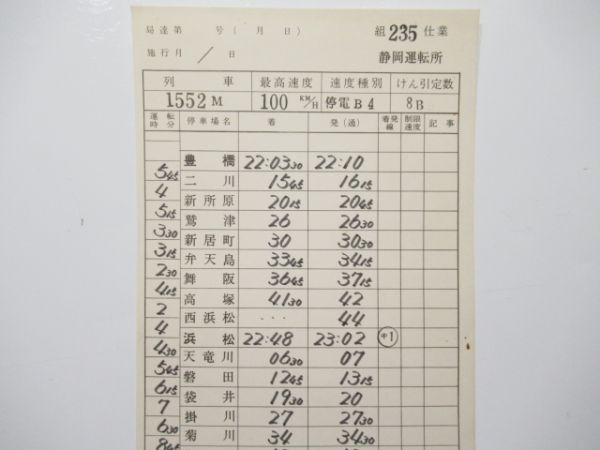 局達第 号(月 日) 組 235 仕業
施行月 / 日 静岡運転所
列 車 最高速度 速度種別 けん引定数
1552M 100 KM/H 停電B4 8B
運転時分 停車場名 着 発(通) 着発線 制限速度 記事
豊橋 22:03 30 22:10
5 45
二川 15 45 16 15
4
新所原 20 15 20 45
5 15
鷲津 26 26 30
3 30
新居町 30 30 30
3 15
弁天島 33 45 34 15
2 30
舞阪 36 45 37 15
4 15
高塚 41 30 42
2
西浜松 ・・・ 44
4
浜松 22:48 23:02 中1
4 30
天竜川 06 30 07
5 45
磐田 12 45 13 15
6 15
袋井 19 30 20
7
掛川 27 27 30
6 30
菊川 34 34 30
8 45